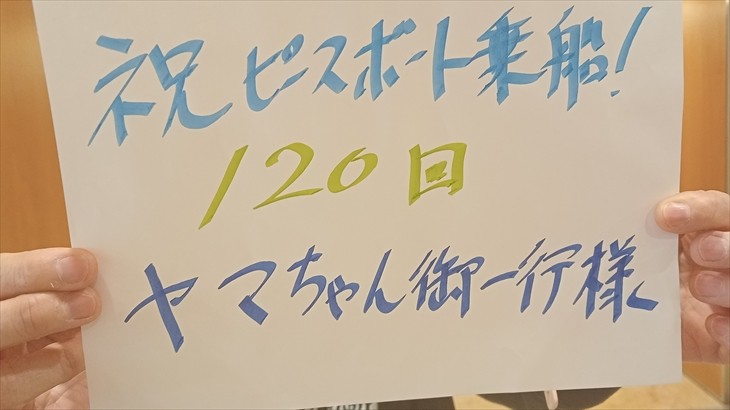 祝ピースボート乗船!
120回
ヤマちゃん御一行様